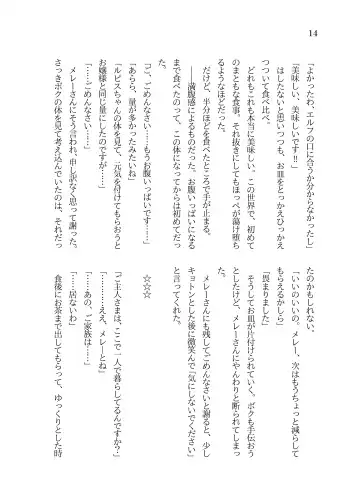 14
「よかったわ、エルフの口に合うか分からなかったし」
「美味しい、美味しいです‼」
はしたないと思いつつも、お皿をとっかえひっかえ
つついて食べ比べ。
どれもこれも本当に美味しい。この世界で、初めて
のまともな食事。それ抜きにしてもほっぺが蕩け堕ち
るようなほどだった。
だけど、半分ほどを食べたところで手が止まる。
――満腹感によるものだった。お腹いっぱいになる
まで食べたのって、この体になってからは初めてだっ
た。
「ご、ごめんなさい……もうお腹いっぱいです……」
「あらら、量が多かったみたいね」
「ルピスちゃんの体を見て、元気を付けてもらおうと
お嬢様と同じ量にしたのですが……」
「……ごめんなさい……」
メレーさんにも、申し訳なく思って謝った。
さっきボクの体を見て考え込んでいたのは、それだっ
たのかもしれない、
「いいのいいの。メレー、次はもうちょっと減らして
もらえるかしら」
「畏まりました」
そうしてお皿が片付けられていく。ボクも手伝おう
としたけど、メレーさんにやんわりと断られてしまっ
た。
メレーさんにも残してごめんなさいと謝ると、少し
キョトンとした後に微笑んで『気にしないでください』
と言ってくれた。
☆☆☆
「ご主人さまは、ここで一人で暮らしてるんですか？」
「ええ、メレーとね」
「……あの、ご家族は……」
「……居ないわ」
食後にお茶まで出してもらって、ゆっくりとした時